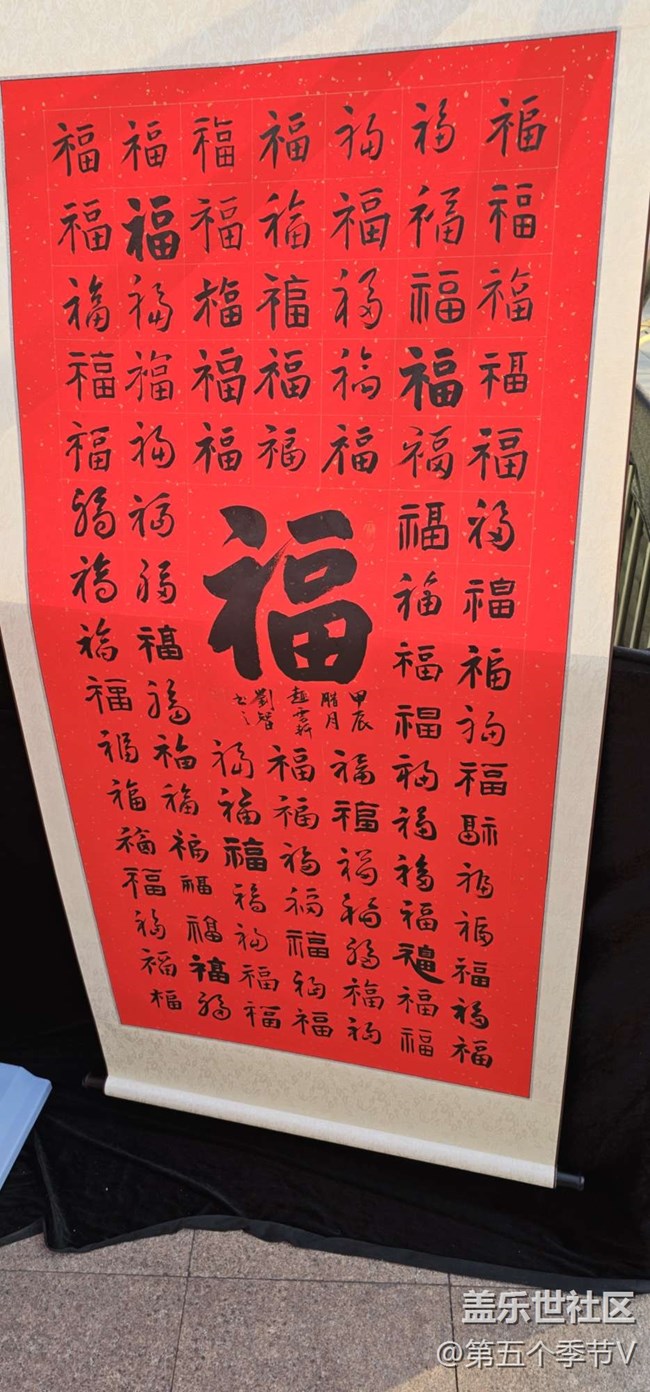 福福福福福福福
福福福福福福福
福福福福福福福
福福福福福福福
福福福福福福福
福福福福
福福福福
福福福福
福福福福
福
甲辰
腊月
雲軒
劉智
书之
福福福福福福福
福福福福福福福
福福福福福福福
福福福福福福福
福福福福福福福
福福福福福福福
福福福福福福福
盖乐世社区
@第五个季节V